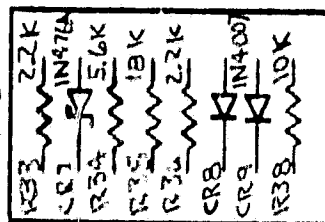 R33 2.2K
CR7 1N4761
R34 5.6K
R35 18K
R36 2.2K
CR8
CR9 1N4007
R38 10K